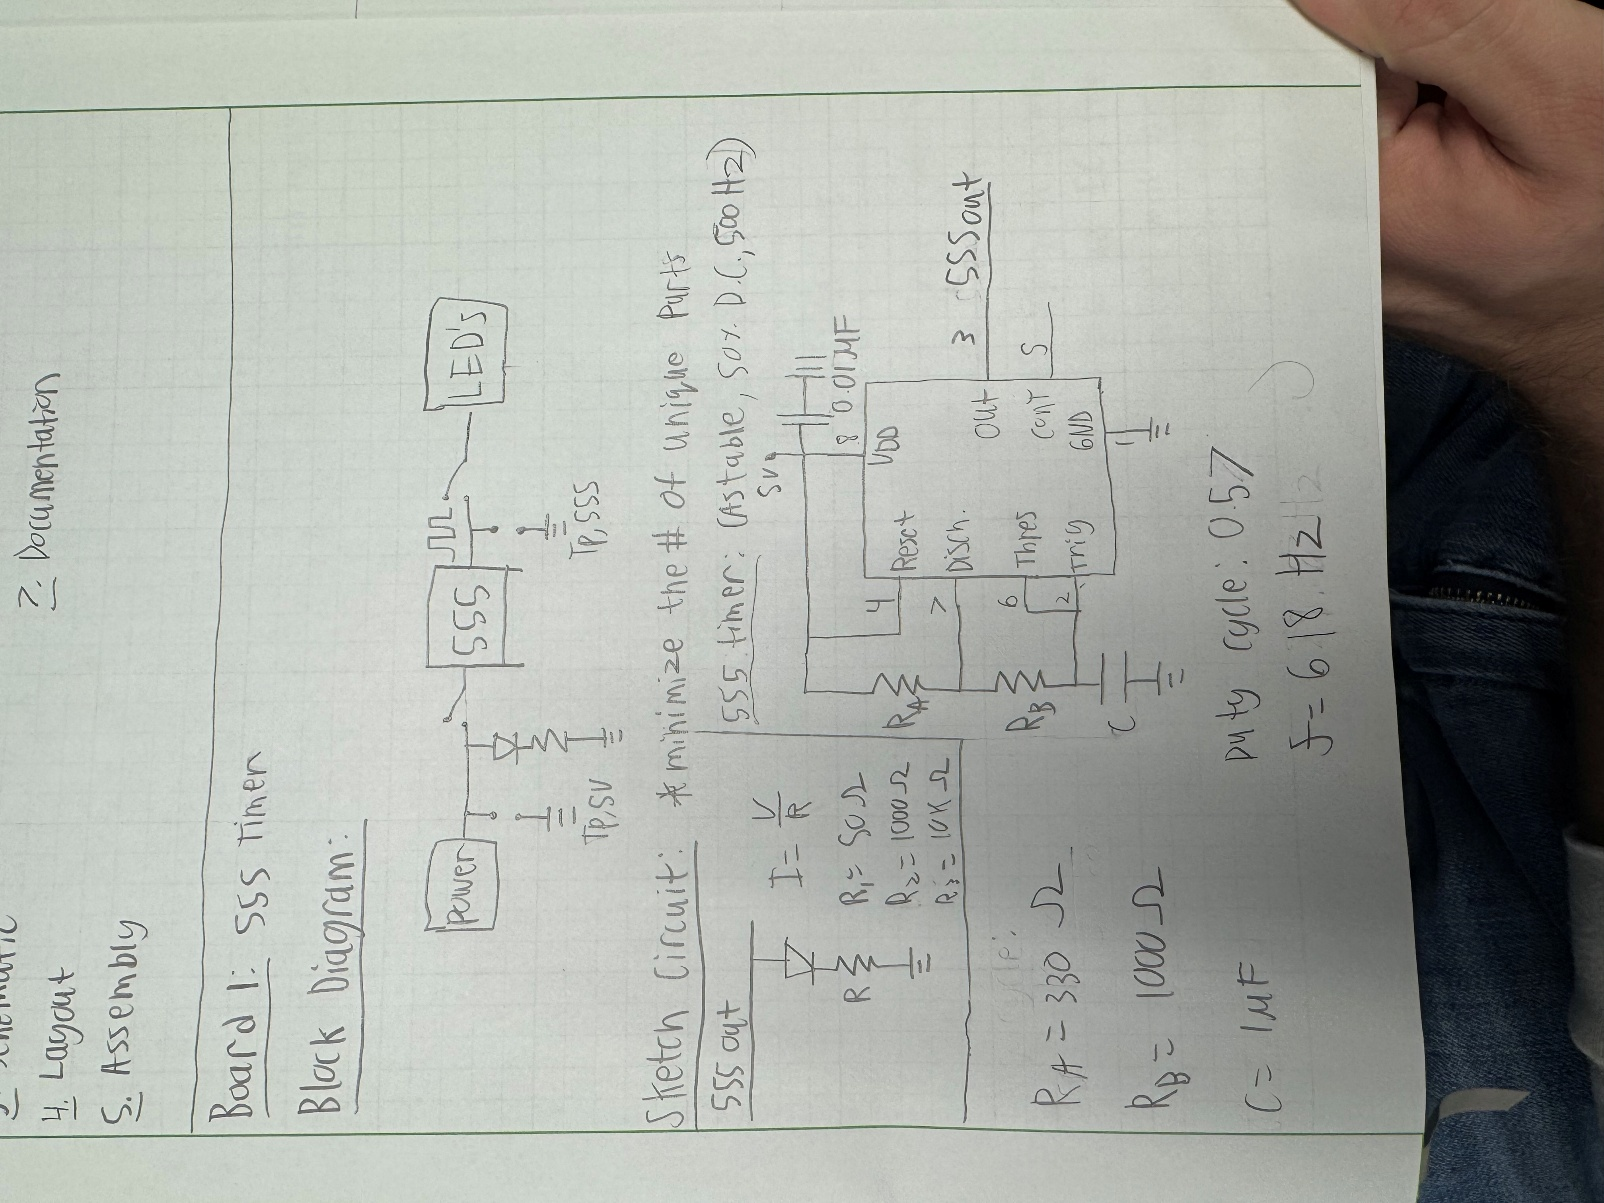 4. Layout
5. Assembly
7. Documentation
Board 1: 555 Timer
Block Diagram:
Power
555
LED's
Tp,5V
Tp,555
Sketch Circuit: *minimize the # of unique parts
555 out
R
I = V/R
R₁ = 50 Ω
R₂ = 1000 Ω
R₃ = 10K Ω
555 timer: (Astable, 50% D.C., 500 Hz)
5V
0.01MF
8
VDD
4 Reset
7 Disch.
6 Thres
2 Trig
Out 3 555out
Cont 5
GND
1
RA
RB
C
RA = 330 Ω
RB = 1000 Ω
C = 1MF
Duty Cycle: 0.57
f = 618. Hz